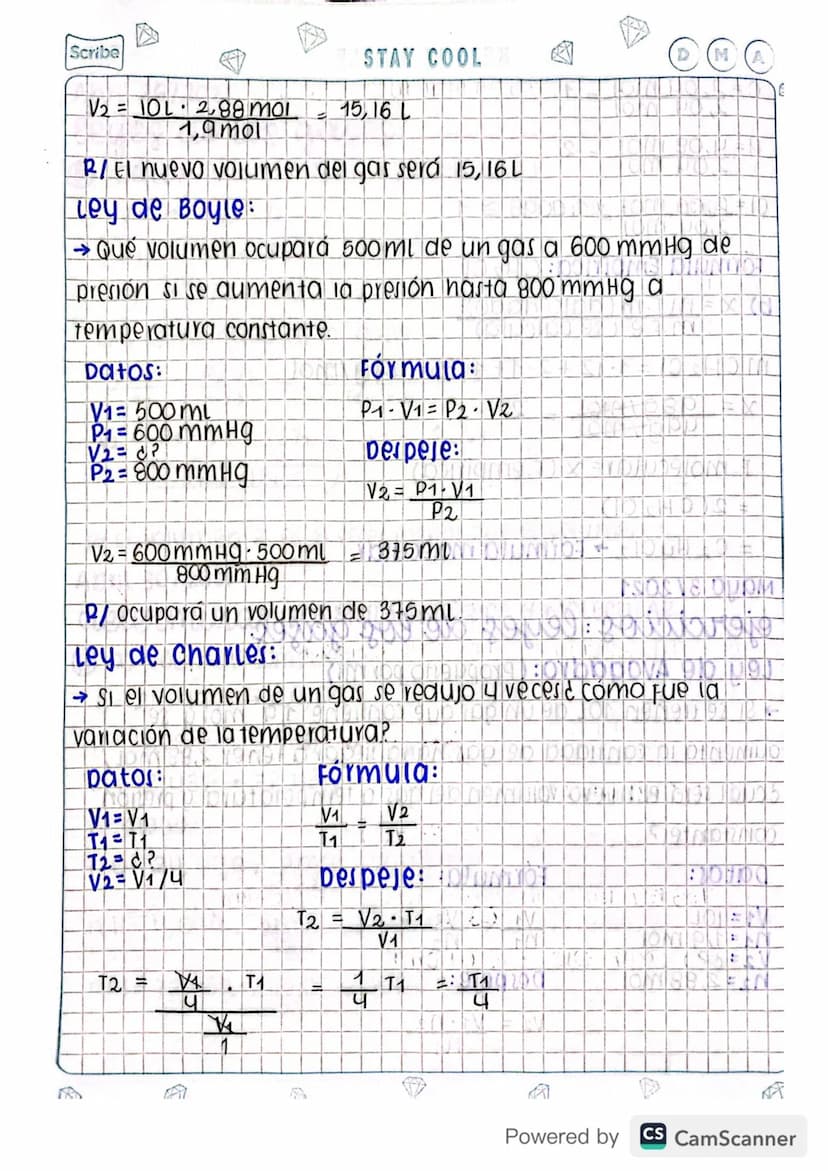 Scribe
STAY COOL
D M A
V2 = 10L · 2,88mol / 1,9mol = 15,16 L
R/ El nuevo volumen del gas será 15,16L
Ley de Boyle:
→ Qué volumen ocupará 500ml de un gas a 600 mmHg de
presión si se aumenta la presión hasta 800 mmHg a
temperatura constante.
Datos: Fórmula:
V1= 500ml P1·V1= P2·V2
P1= 600 mmHg
V2= ¿? Despeje:
P2= 800 mmHg
V2= P1·V1 / P2
V2= 600mmHg · 500ml / 800mmHg = 375ml
R/ Ocupará un volumen de 375ml.
Ley de Charles:
→ Si el volumen de un gas se redujo 4 veces¿ cómo fue la
variación de la temperatura?
Datos: Fórmula:
V1= V1 V1/T1 = V2/T2
T1= T1
T2= ¿?
V2= V1/4 Despeje:
T2 = V2·T1 / V1
T2 = V1/4 . T1 / V1/1 = 1/4 T1 = T1/4
Powered by CS CamScanner